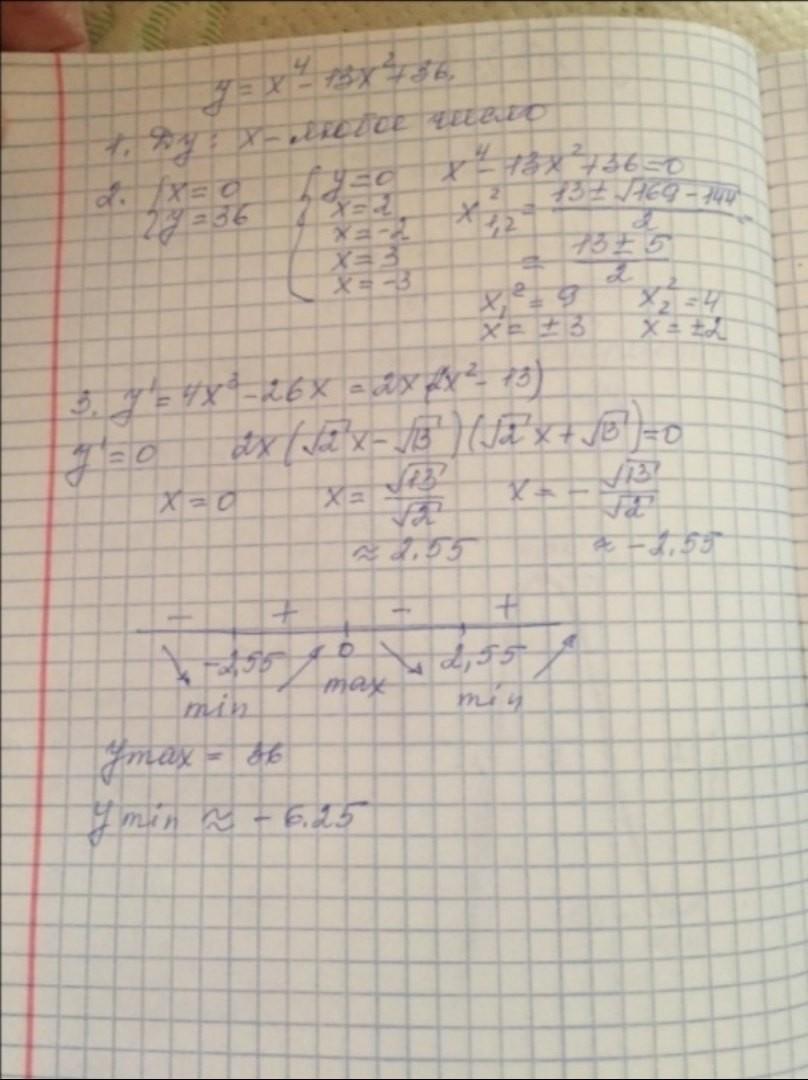 y = x⁴ - 13x² + 36.
1. Dy: x - любое число
2. { x = 0 { y = 0 x⁴ - 13x² + 36 = 0
y = 36 x = 2 x²₁,₂ = (13 ± √(169 - 144))/2 =
x = -2
x = 3 = (13 ± 5)/2
x = -3 x₁² = 9 x₂² = 4
x = ± 3 x = ±2
3. y' = 4x³ - 26x = 2x(2x² - 13)
y' = 0 2x(√2 x - √13)(√2 x + √13) = 0
x = 0 x = √13/√2 x = - √13/√2
≈ 2.55 ≈ -2.55
- + - +
-2,55 0 2,55
min max min
y max = 36
y min ≈ - 6.25